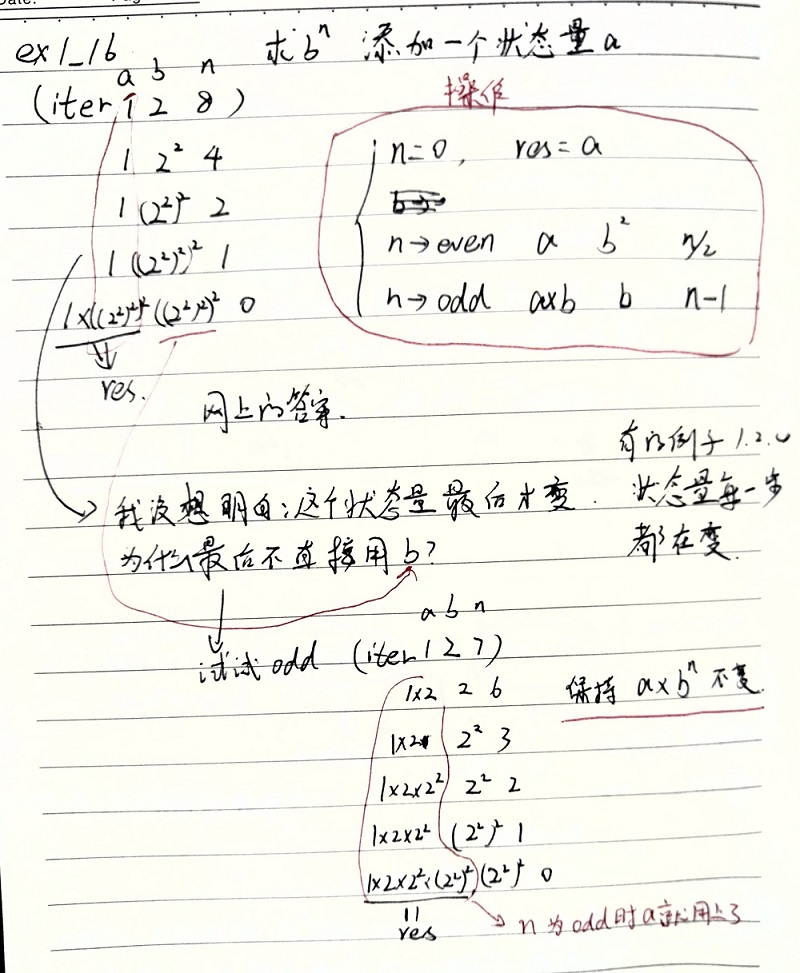 Date:
ex1_16 求bⁿ 添加一个状态量a
a b n
(iter 1 2 8)
1 2² 4
1 (2²)² 2
1 ((2²)²)² 1
1×((2²)²)² ((2²)²)² 0
res.
操作
n=0, res=a
n→even a b² n/2
n→odd a×b b n-1
网上的答案.
有的例子1.2.
状态量每一步
都在变.
我没想明白:这个状态量最后才变.
为什么最后不直接用b?
试试odd
a b n
(iter 1 2 7)
1×2 2 6
1×2 2² 3
1×2×2² 2² 2
1×2×2² (2²)² 1
1×2×2²×(2²)² (2²)² 0
res
保持 a×bⁿ 不变.
n为odd时a就用上了